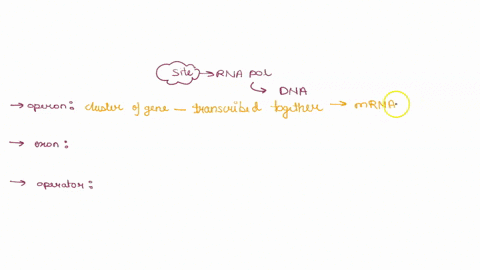 Site → RNA pol
↳ DNA
→ operon: cluster of gene — transcribed together → mRNA
→ exon:
→ operator: